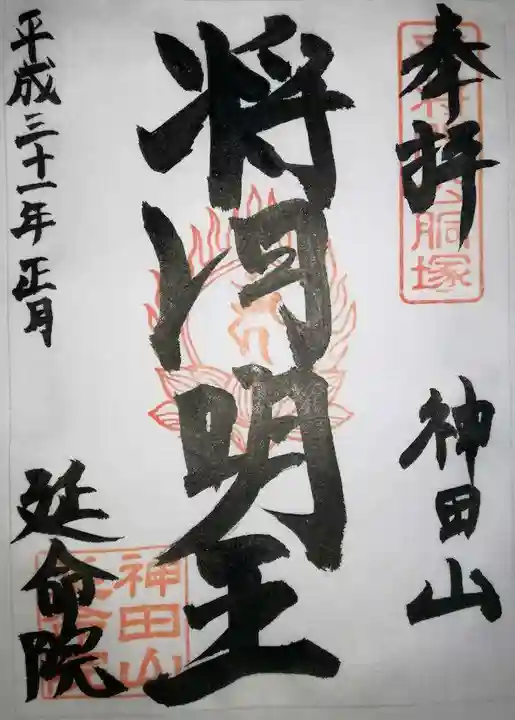 奉拝
神田山
将門明王
平成三十一年正月
延命院
胴塚
神田山